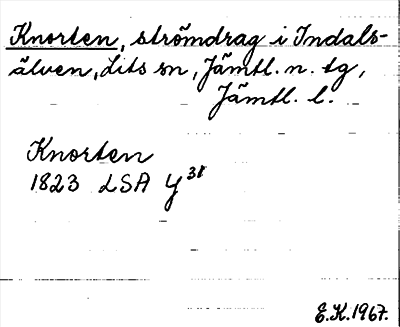 Knorten, strömdrag i Indals-
älven, Lits sn, Jämtl. n. tg,
Jämtl. l.
Knorten
1823 LSA Y³¹
E.K. 1967.